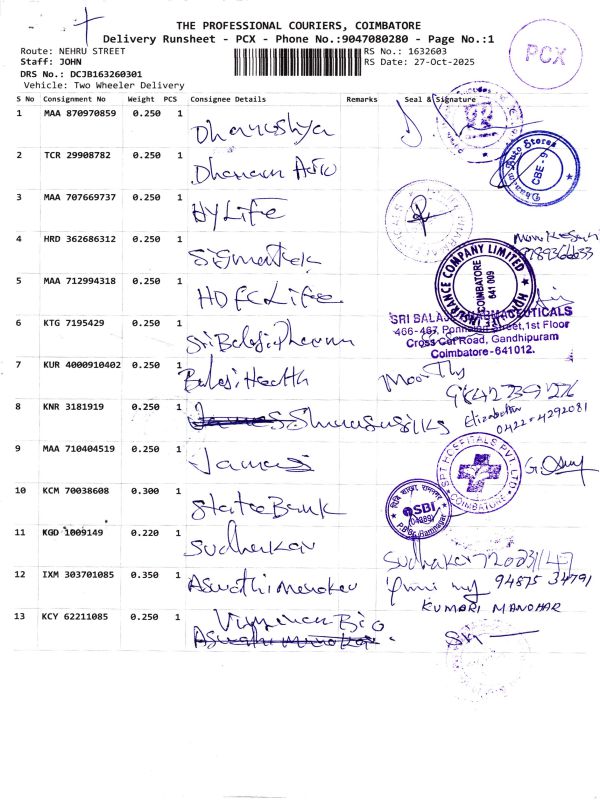 THE PROFESSIONAL COURIERS, COIMBATORE
Delivery Runsheet - PCX - Phone No.:9047080280 - Page No.:1
Route: NEHRU STREET
RS No.: 1632603
Staff: JOHN
RS Date: 27-Oct-2025
DRS No.: DCJB163260301
Vehicle: Two Wheeler Delivery
PCX
S No Consignment No Weight PCS Consignee Details Remarks Seal & Signature
1 MAA 870970859 0.250 1 Dhanushya
2 TCR 29908782 0.250 1
CBE-9
3 MAA 707669737 0.250 1 HYLIFE
4 HRD 362686312 0.250 1
INSURANCE COMPANY LIMITED
COIMBATORE
641 009
5 MAA 712994318 0.250 1 HDFC Life
SRI BALAJI PHARMACEUTICALS
466-467, Street, 1st Floor
Cross Cut Road, Gandhipuram
Coimbatore-641012.
6 KTG 7195429 0.250 1 Sri Balaji Pharma
7 KUR 4000910402 0.250 1 Balaji Health
Moorthy
8 KNR 3181919 0.250 1
Elizabeth
0422-4292081
9 MAA 710404519 0.250 1 James
HOSPITALS PVT LTD
COIMBATORE
10 KCM 70038608 0.300 1 State Bank
SBI
11 KGD 1009149 0.220 1 Sudhakar
Sudhakar
12 IXM 303701085 0.350 1 Aswathi Manoker
94875 34791
KUMARI MANOHAR
13 KCY 62211085 0.250 1 Bio